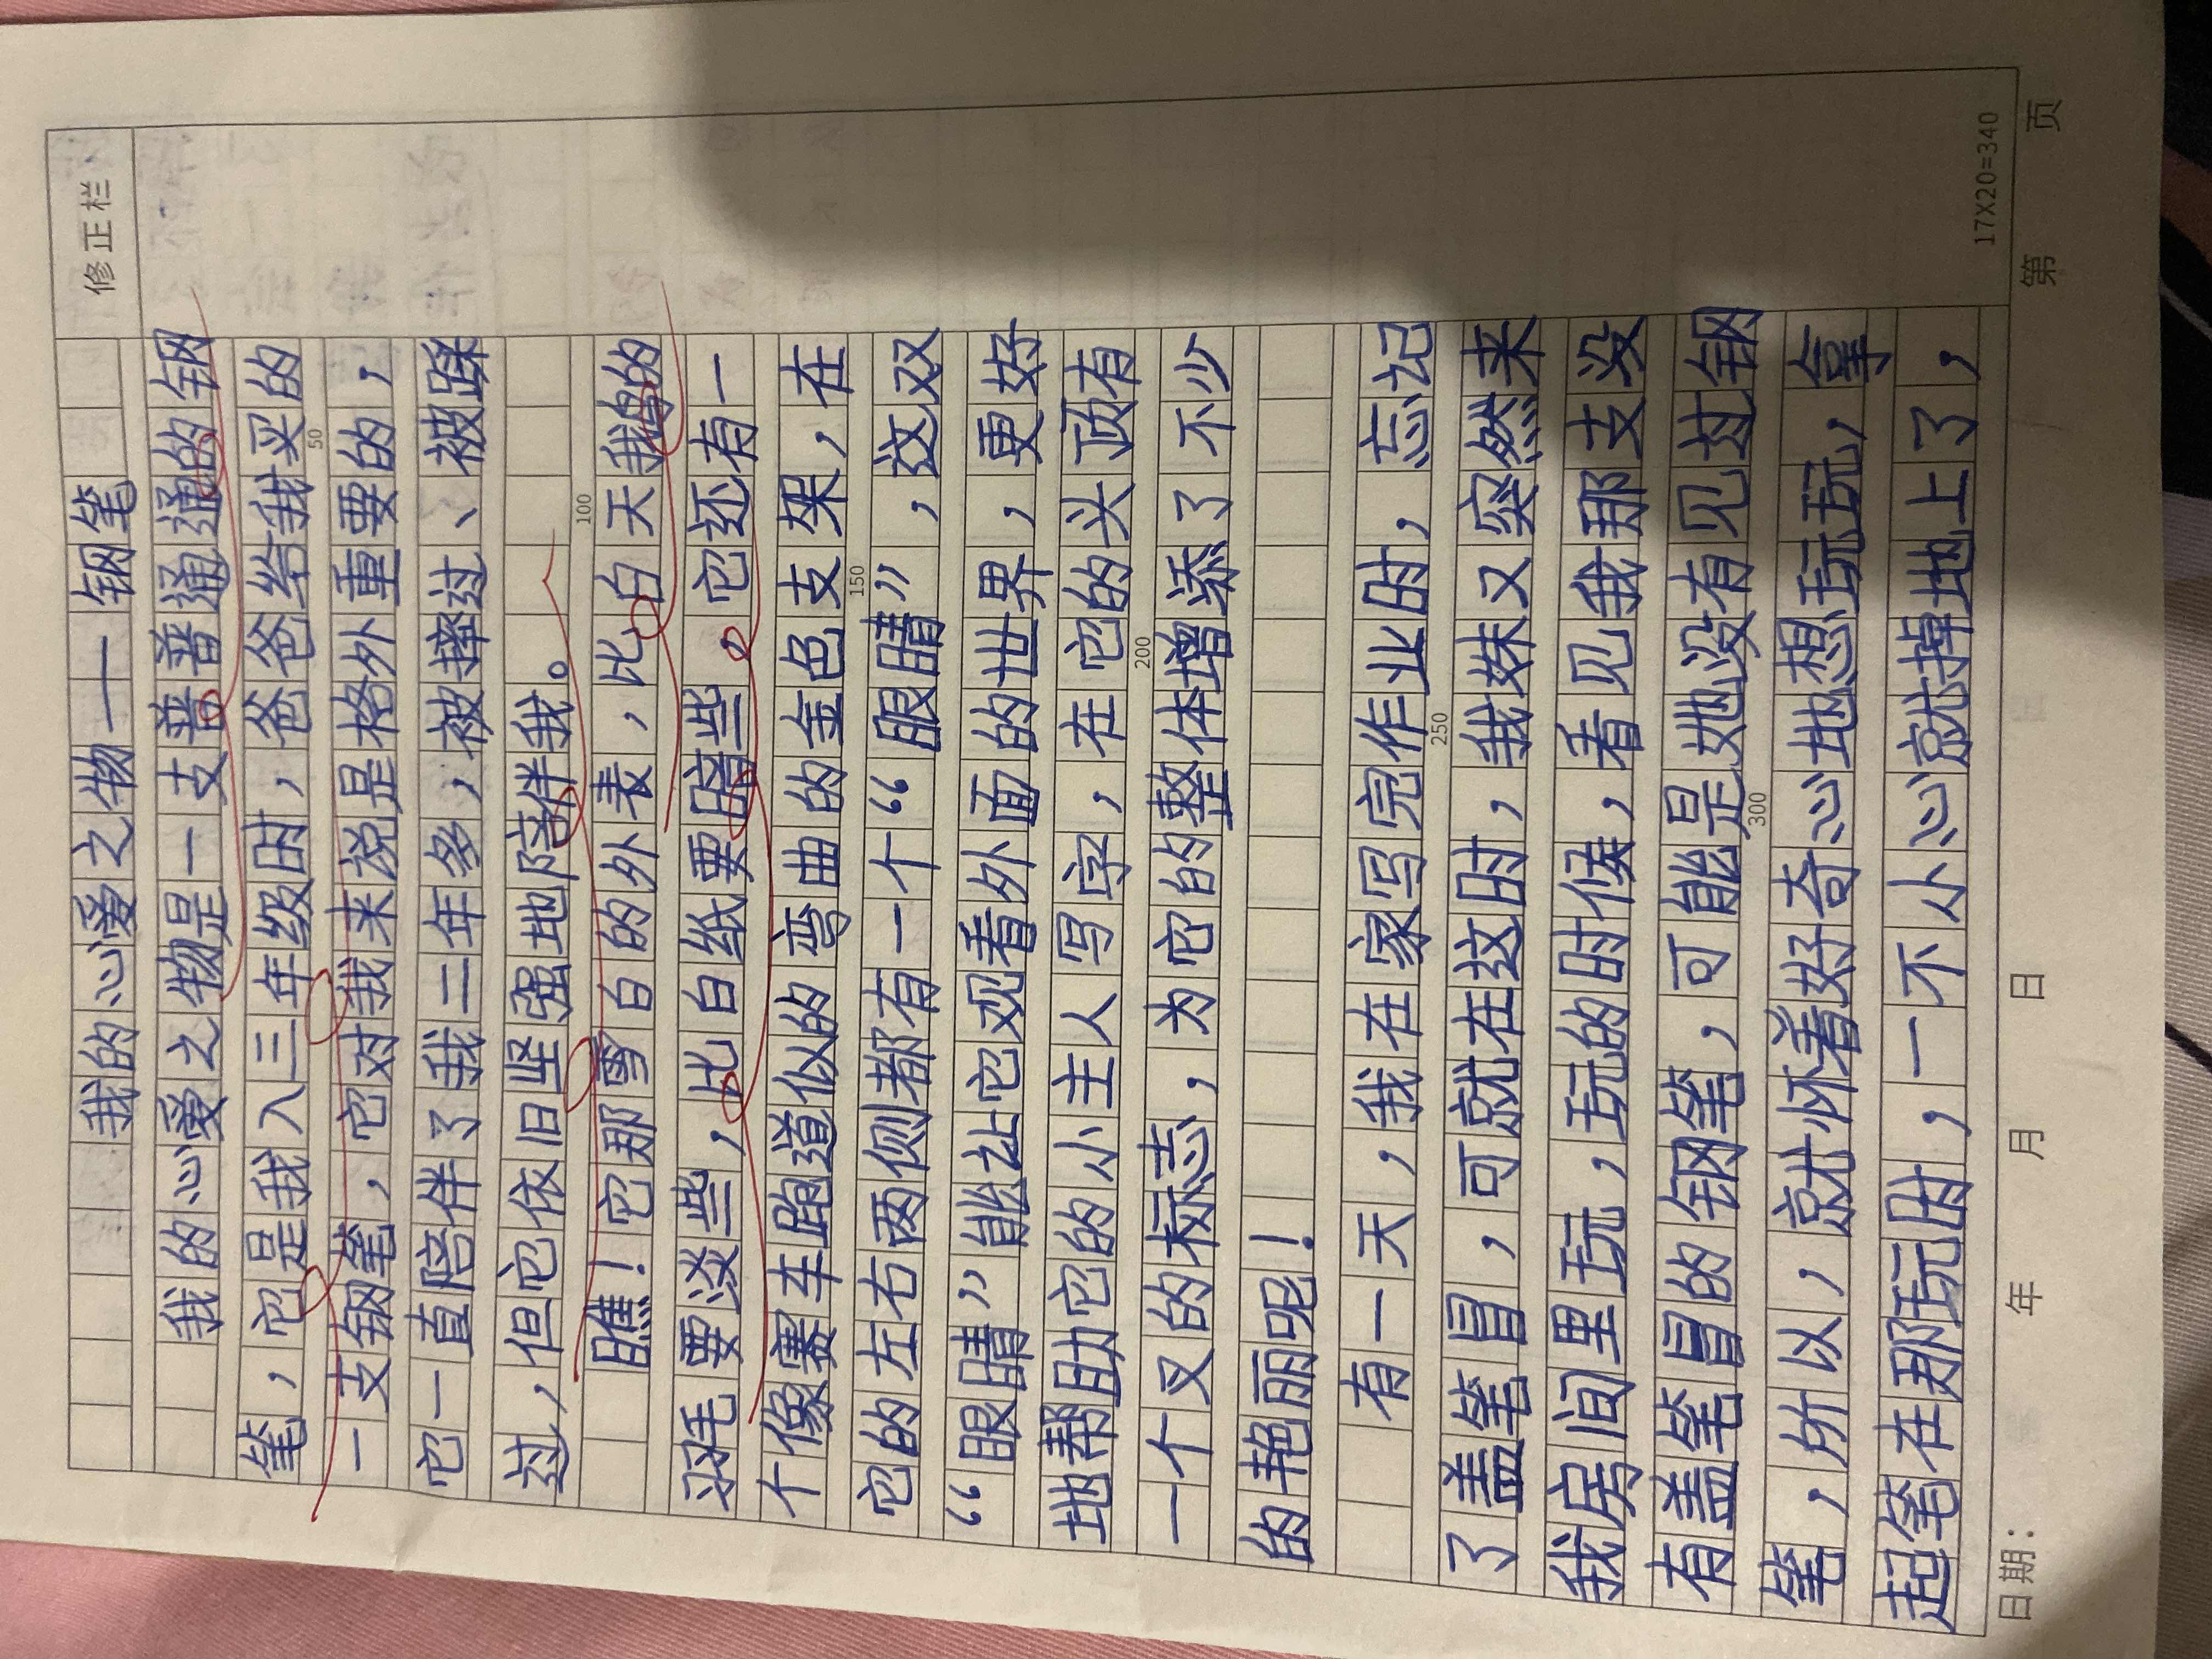 修正栏
我的心爱之物——钢笔
我的心爱之物是一支普普通通的钢
笔，它是我入三年级时，爸爸给我买的
50
一支钢笔，它对我来说是格外重要的，
它一直陪伴了我二年多，被摔过、被踩
过，但它依旧坚强地陪伴我。
100
瞧！它那雪白的外表，比白天鹅的
羽毛要淡些，比白纸要暗些。它还有一
个像赛车跑道似的弯曲的金色支架，在
150
它的左右两侧都有一个“眼睛”，这双
“眼睛”能让它观看外面的世界，更好
地帮助它的小主人写字，在它的头顶有
200
一个叉的标志，为它的整体增添了不少
的艳丽呢！
有一天，我在家写完作业时，忘记
250
了盖笔冒，可就在这时，我妹又突然来
我房间里玩，玩的时候，看见我那支没
有盖笔冒的钢笔，可能是她没有见过钢
300
笔，所以，就怀着好奇心地想玩玩，拿
起笔在那玩时，一不小心就掉地上了，
17X20=340
日期： 年 月 日 第 页